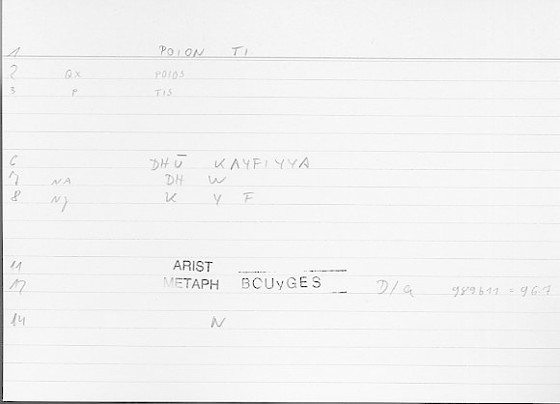 1 POION TI
2 Qx POIOS
3 r TIS
6 DHŪ KAYFIYYA
7 NA DH W
8 Nj K Y F
11 ARIST
METAPH BOUyGES D/a 989b11 = 96.7
14 N